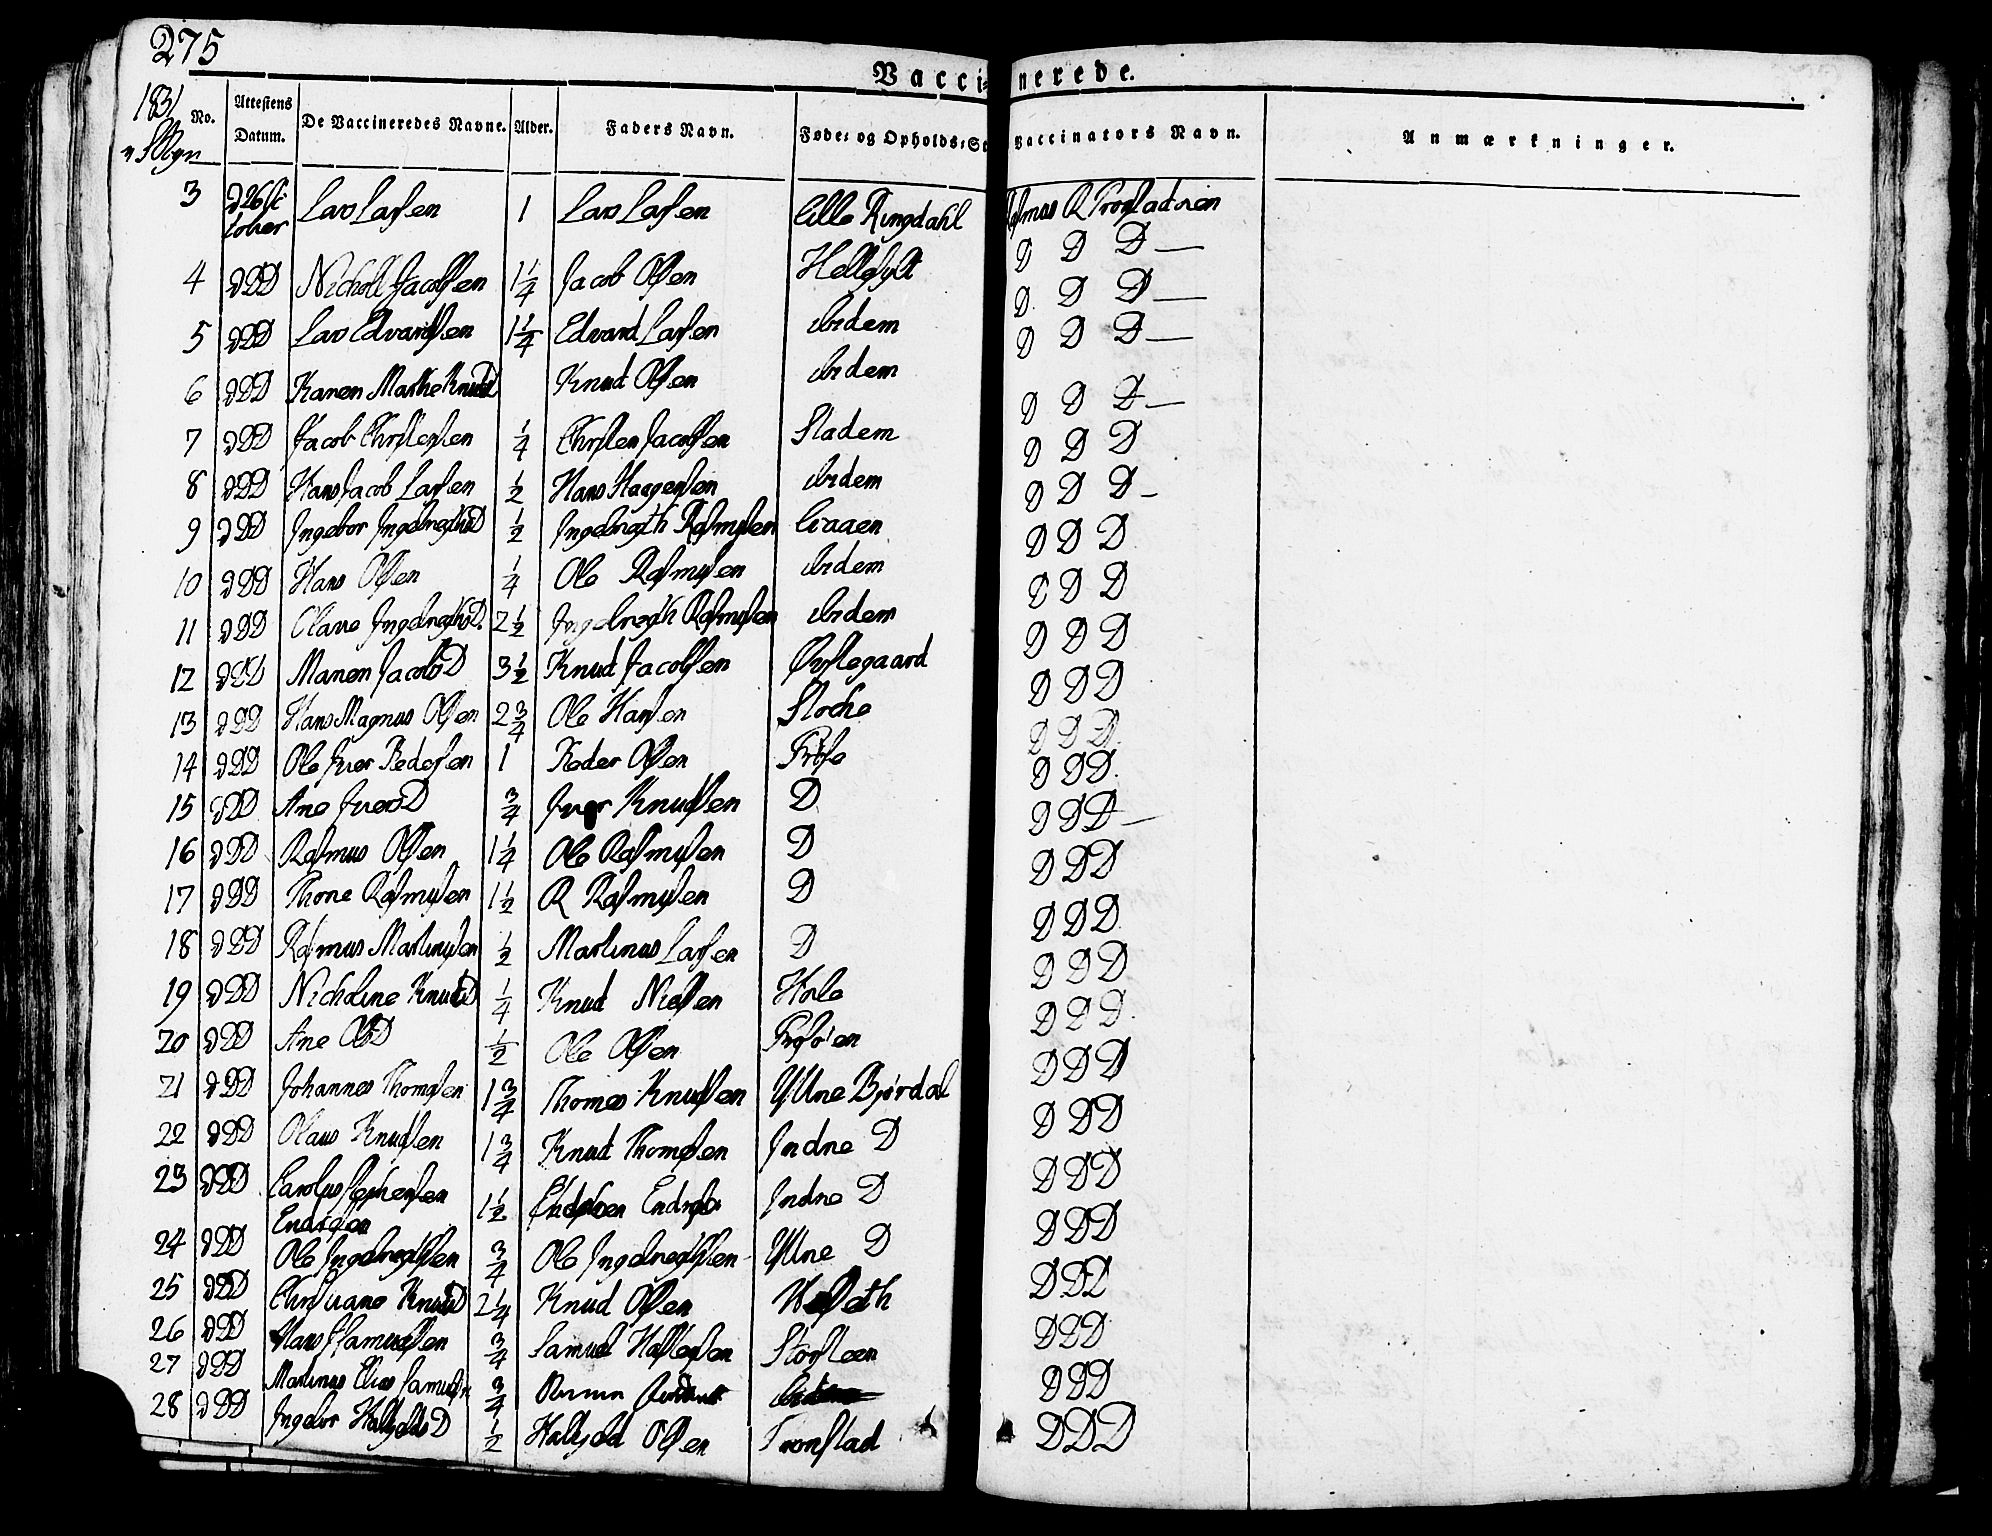 275
Vaccinerede.
1831
No. Attestens Datum. De Vaccineredes Navne. Alder. Faders Navn. Føde- og Opholds-St Vaccinators Navn. Anmærkninger.
3 D 26 October Lars Larsen 1 Lars Larsen Lille Ringdahl Rasmus R Tronstadvien
4 D D D Nicholi Jacobsen 1 1/4 Jacob Olsen Hellesylt D D D
5 D D D Lars Edvardsen 1 1/4 Edvard Larsen ibidem D D D
6 D D D Karen Marthe Knudsd Knud Olsen ibidem D D D
7 D D D Jacob Christensen 1/4 Christen Jacobsen Stadem D D D
8 D D D Hans Jacob Larsen 1/2 Hans Haagensen ibidem D D D
9 D D D Ingebor Ingebregtsd 1/2 Ingebregth Rasmussen Craaen D D D
10 D D D Hans Olsen 1/4 Ole Rasmussen ibidem D D D
11 D D D Olave IngebregthsD. 2 1/2 Ingebregth Rasmussen ibidem D D D
12 D D D Maren JacobsD 3 1/2 Knud Jacobsen Øvstegaard D D D
13 D D D Hans Magnus Olsen 2 3/4 Ole Hansen Stoche D D D
14 D D D Ole Iver Pedersen 1 Peder Olsen Frøse D D D
15 D D D Ane IversD 3/4 Iver Knudsen D D D D
16 D D D Rasmus Olsen 1 1/4 Ole Rasmussen D D D D
17 D D D Thore Rasmussen 1 1/2 R Rasmussen D D D D
18 D D D Rasmus Martinussen 1/2 Martinus Larsen D D D D
19 D D D Nicholine KnudsD 1/4 Knud Nielsen Hole D D D
20 D D D Ane OlsD 1/2 Ole Olsen Frøsøen D D D
21 D D D Johannes Thomsen 1 3/4 Thomes Knudsen Yttre Bjørdal D D D
22 D D D Olaus Knudsen 1 3/4 Knud Thomesen Indre D D D D
23 D D D Carolus Stephensen Endresen 1 1/2 Endre Indre D D D D
24 D D D Ole Ingebregthsen 3/4 Ole Ingebregthsen Yttre D D D D
25 D D D Christiane KnudsD 2 1/4 Knud Olsen D D D
26 D D D Hans Samuelsen 3/4 Samuel Hallesen Storsteen D D D
27 D D D Martinus Elias Samuelsn 3/4 D D D
28 D D D Ingebor HalkjeldsD 1/2 Halkjeld Olsen Tronstad D D D